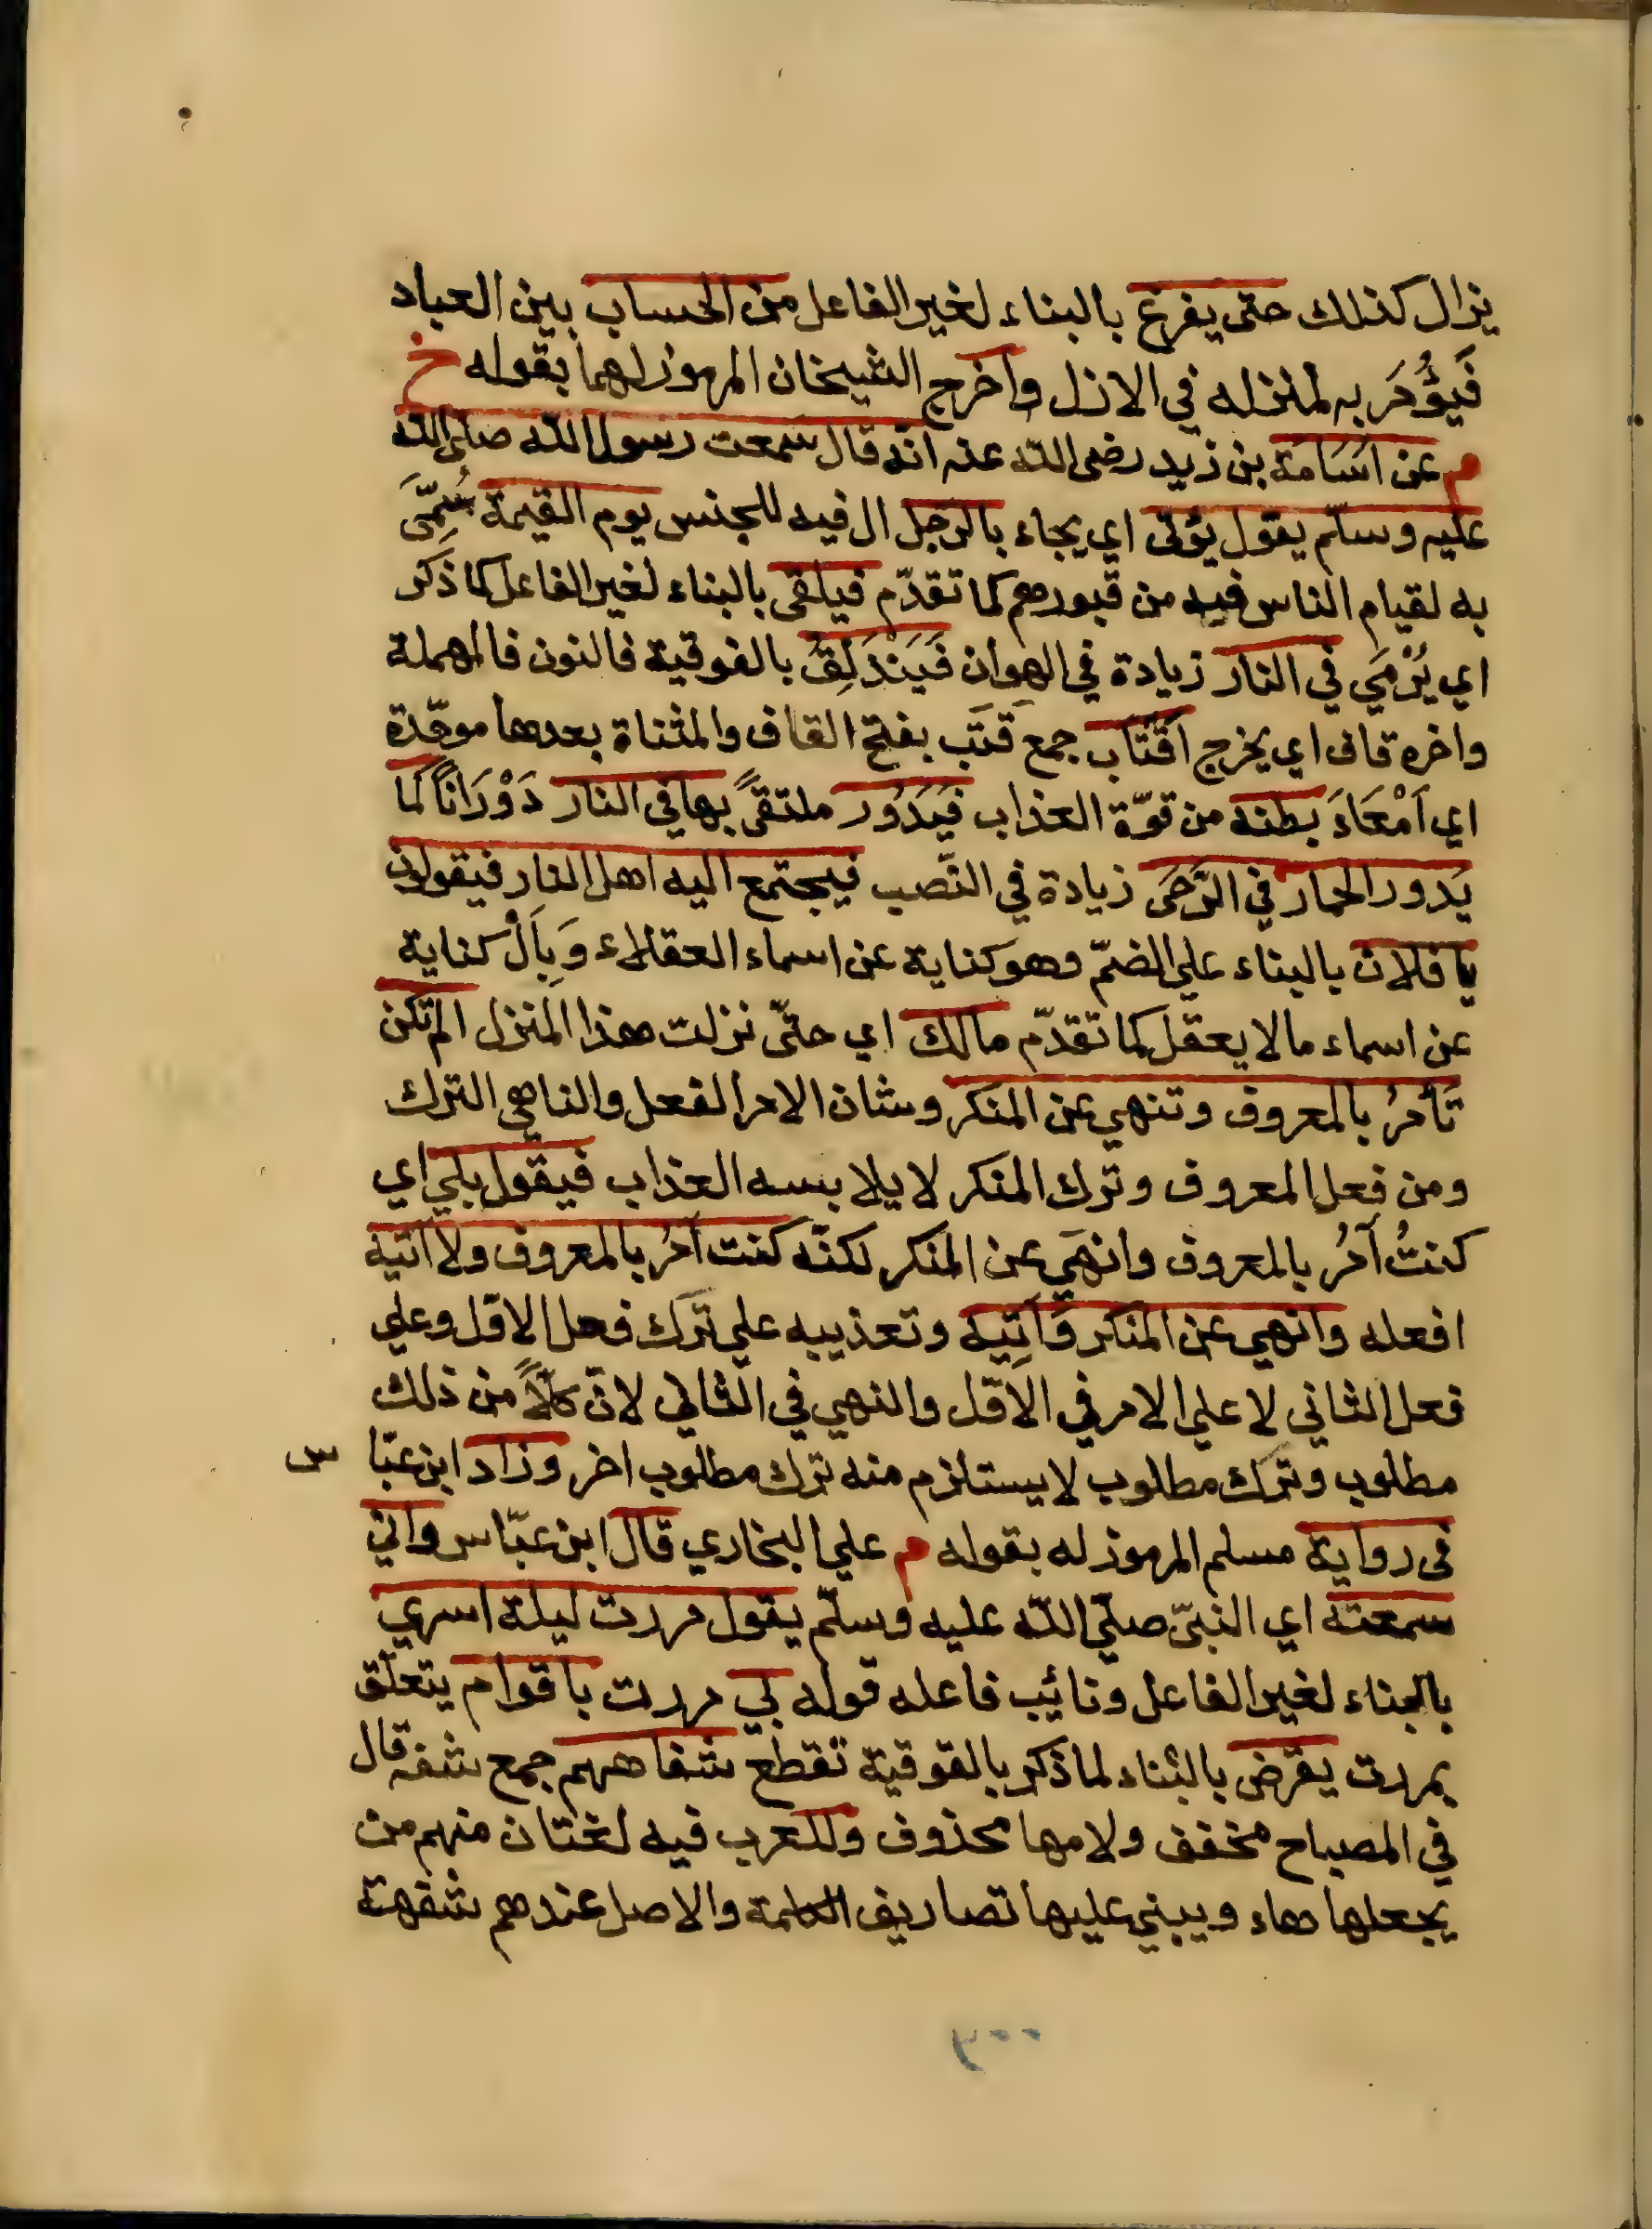 يزال كذلك حتى يفرغ بالبناء لغير الفاعل من الحساب بين العباد
فَيُؤْمَر به لمنزله في الازل واخرج الشيخان المرموز لهما بقوله خ
م عن اسَامَة بن زيد رضى الله عنه انّه قال سمعت رسول الله صلى الله
عليه وسلّم يقول يؤتى اي يجاء بالرّجل ال فيه للجنس يوم القيمة سُمِّىَ
به لقيام الناس فيه من قبورهم كما تقدّم فيلقى بالبناء لغير الفاعل كما ذكر
اي يُرْمَي في النار زيادة في الهوان فَيَنْدَلِقُ بالفوقية فالنون فالمهملة
واخره قاف اي يخرج اقْتَاب جمع قتَب بفتح القاف والمثناة بعدها موحّدة
اي اَمْعَاءَ بطنه من قوّة العذاب فيَدُور ملتقىً بها في النار دَوْرَاناً كما
يَدور الحمار في الرّحَى زيادة في النّصب فيجتمع اليه اهل النار فيقولون
يا فلان بالبناء على الضمّ وهو كناية عن اسماء العقلاء وَبِاَلْ كناية
عن اسماء ما لا يعقل كما تقدّم مالك اي حتّى نزلت هذا المنزل الم تكن
تأمرُ بالمعروف وتنهي عن المنكر وشان الامر الفعل والناهي الترك
ومن فعل المعروف وترك المنكر لا يلابسه العذاب فيقول بلي اي
كنتُ آمُر بالمعروف وانهَي عن المنكر لكنّه كنت آمُر بالمعروف ولا اتيه
افعله وانهي عن المنكر وَآتِيه وتعذيبه علي ترك فعل الاوّل وعلي
فعل الثاني لا علي الامر في الاوّل والنهي في الثاني لانّ كلّاً من ذلك
مطلوب وترك مطلوب لا يستلزم منه ترك مطلوب اخر وزاد ابن عبّا س
في رواية مسلم المرموز له بقوله م علي البخاري قال ابن عبّاس واني
سمعته اي النبىّ صلّي الله عليه وسلّم يقول مررت ليلة اسري
بالبناء لغير الفاعل ونائب فاعله قوله بي مررت باقوام يتعلّق
بمررت يقرض بالبناء لما ذكر بالفوقيّة تقطع شفاههم جمع شفه قال
في المصباح مخفف ولامها محذوف وللعرب فيه لغتان منهم من
يجعلها هاء ويبني عليها تصاريف الكلمة والاصل عندهم شفهة
٢٠٠